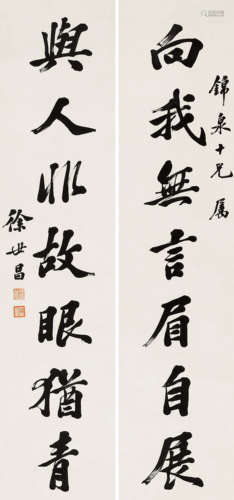 錦泉十兄屬
向我無言眉自展
與人非故眼猶青
徐世昌